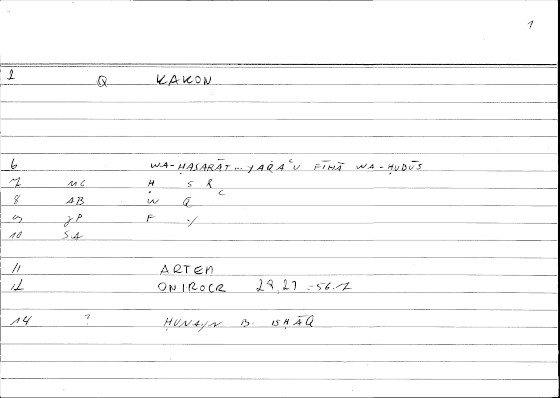 1
1 Q KAKON
6 WA-ḤASARĀT... YAQAʿU FĪHĀ WA-ḤUDŪṮ
7 MC Ḥ S R C
8 AB W Q
9 JP F
10 SA
11 ARTEM
12 ONIROCR 29,27 =56.7
14 ? ḤUNAYN B. ISḤĀQ